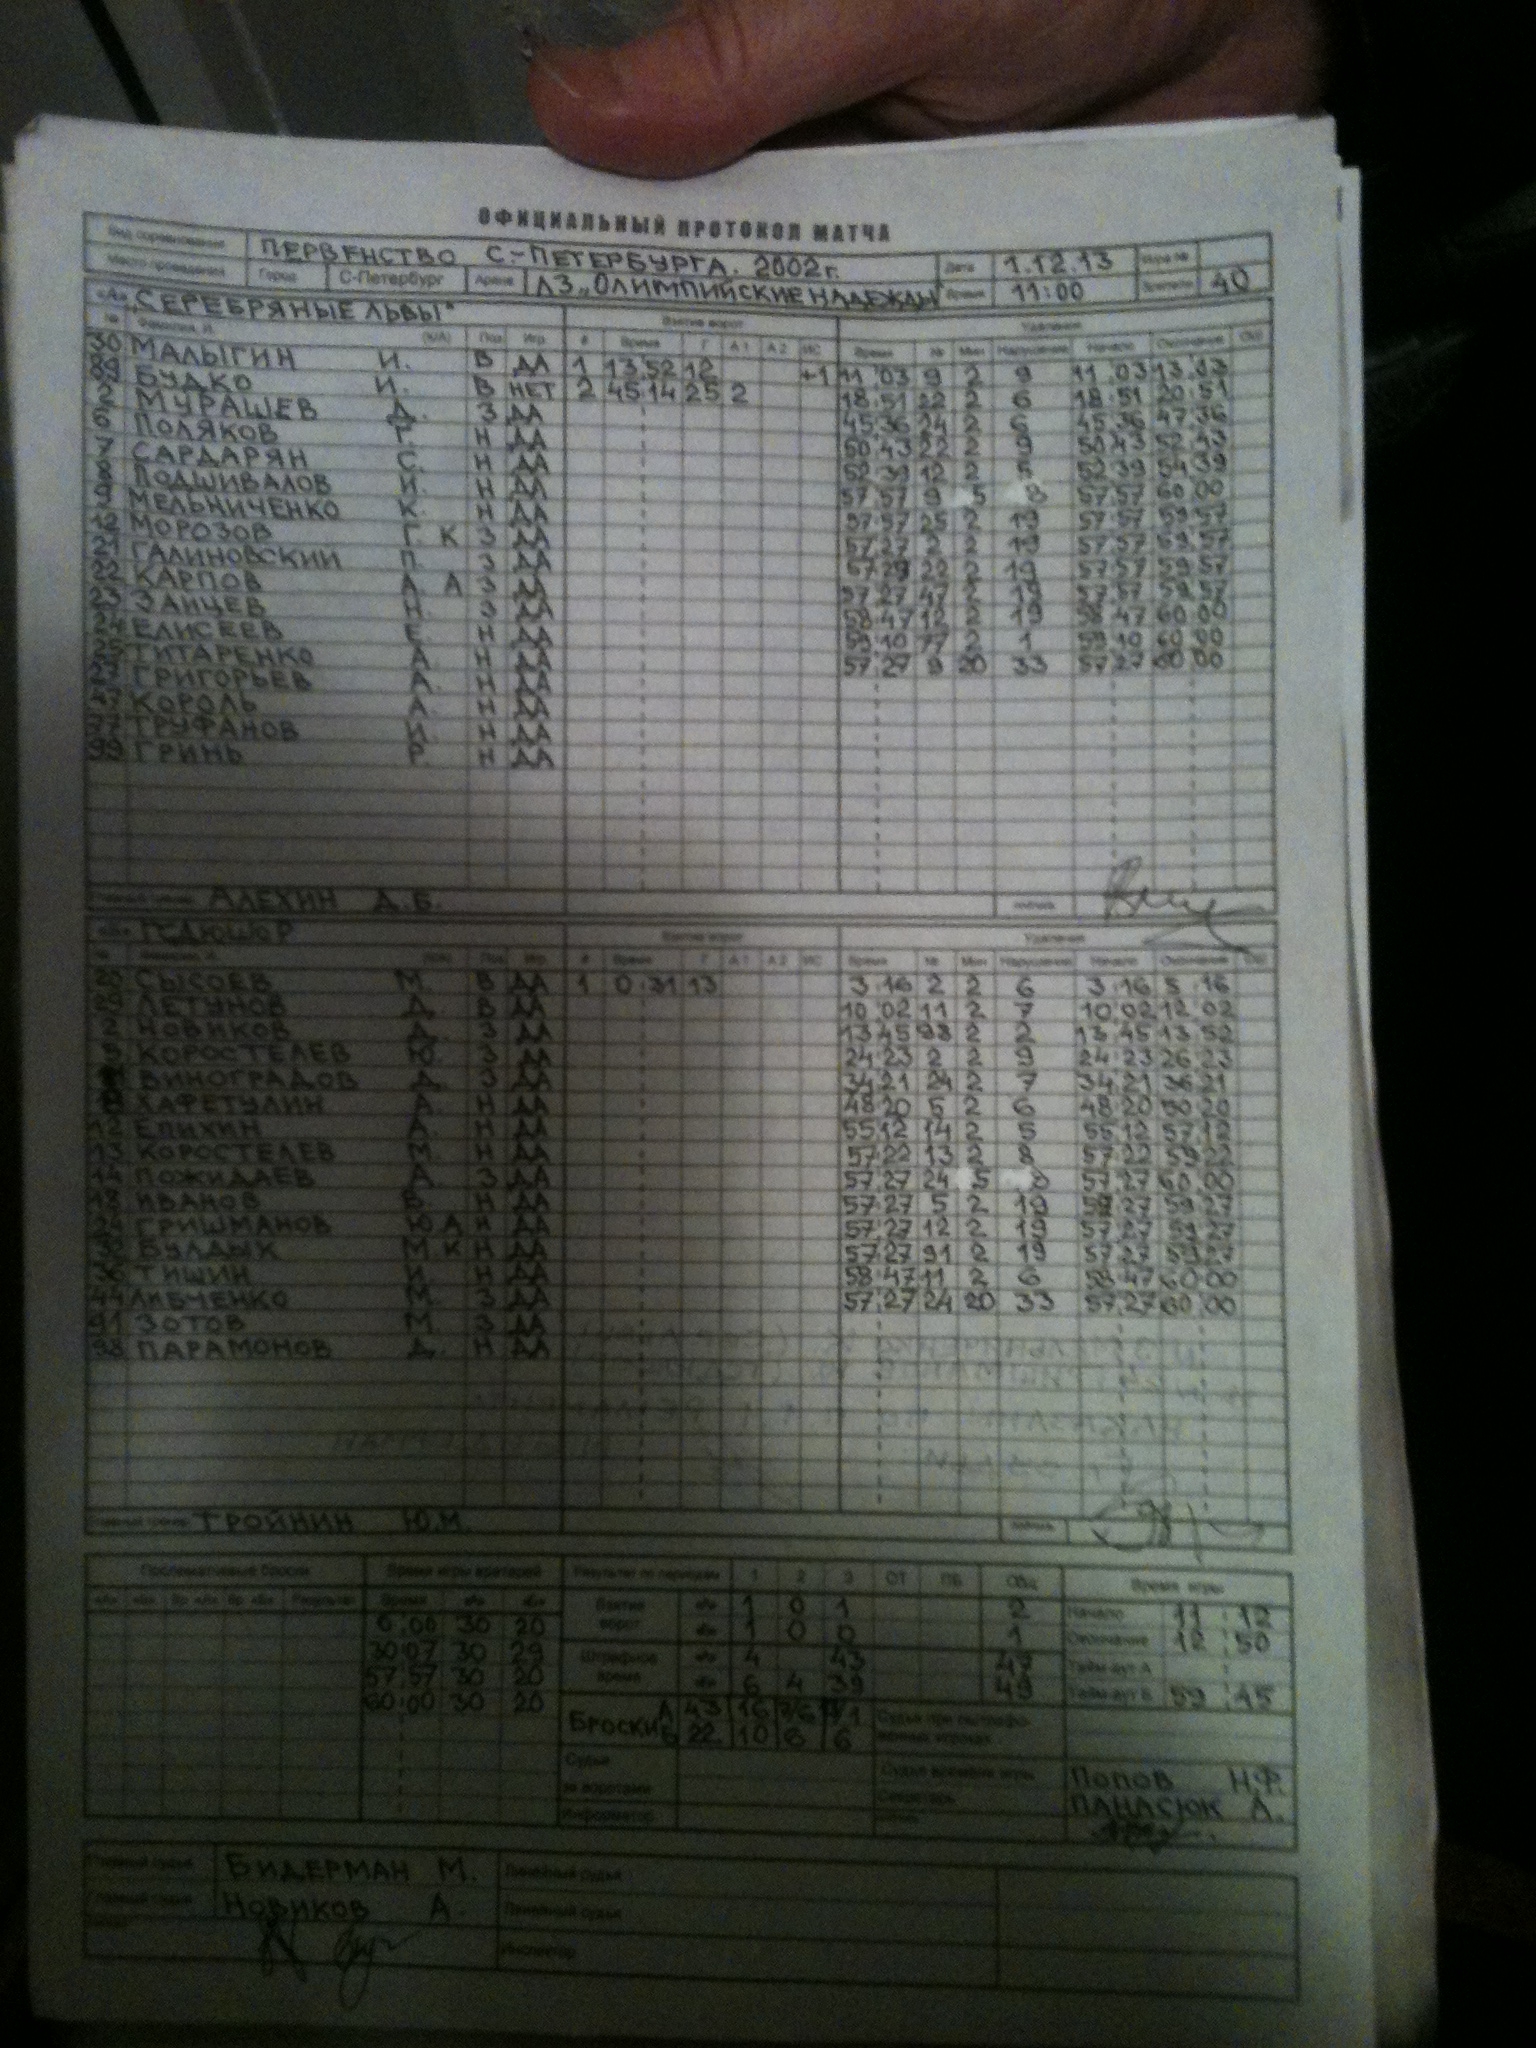 ОФИЦИАЛЬНЫЙ ПРОТОКОЛ МАТЧА
Вид соревнования ПЕРВЕНСТВО С-ПЕТЕРБУРГА. 2002г. Дата 1.12.13 Игра №
Место проведения Город С-Петербург Арена ЛЗ „ОЛИМПИЙСКИЕ НАДЕЖДЫ Время 11:00 Зрители 40
«А» "СЕРЕБРЯНЫЕ ЛЬВЫ" Взятие ворот Удаления
№ Фамилия, И. (К/А) Поз Игр # Время Г А1 А2 ИС Время № Мин Нарушение Начало Окончание
30 МАЛЫГИН И. В ДА 1 13 52 12 +1 11 03 9 2 9 11 03 13 03
БУДКО И. В НЕТ 2 45 14 25 2 18 51 22 2 6 18 51 20 51
2 МУРАШЕВ Д. З ДА 45 36 24 2 6 45 36 47 36
6 ПОЛЯКОВ Г. Н ДА 50 43 22 2 9 50 43 52 43
7 САРДАРЯН С. Н ДА 52 39 12 2 5 52 39 54 39
8 ПОДШИВАЛОВ И. Н ДА 57 57 9 5 8 57 57 60 00
9 МЕЛЬНИЧЕНКО К. Н ДА 57 57 25 2 19 57 57 59 57
12 МОРОЗОВ Г. К З ДА 57 27 2 2 19 57 57 59 57
21 ГАЛИНОВСКИЙ П. З ДА 57 29 22 2 19 57 57 59 57
22 КАРПОВ А. А З ДА 57 27 47 2 19 57 57 59 57
23 ЗАЙЦЕВ Н. З ДА 58 47 12 2 19 58 47 60 00
24 ЕЛИСЕЕВ Е. Н ДА 59 10 77 2 1 59 10 60 00
25 ТИТАРЕНКО А. Н ДА 57 27 9 20 33 57 27 60 00
ГРИГОРЬЕВ А. Н ДА
47 КОРОЛЬ А. Н ДА
77 ТРУФАНОВ И. Н ДА
99 ГРИНЬ Р. Н ДА
АЛЕХИН Д.Б.
«Б» Взятие ворот Удаления
№ Фамилия, И. (К/А) Поз Игр # Время Г А1 А2 ИС Время № Мин Нарушение Начало Окончание
20 СЫСОЕВ М. В ДА 1 0 31 13 3 16 2 2 6 3 16 5 16
29 ЛЕТУНОВ Д. В ДА 10 02 11 2 7 10 02 12 02
2 НОВИКОВ Д. З ДА 13 45 98 2 2 13 45 13 52
5 КОРОСТЕЛЕВ Ю. З ДА 24 23 2 2 9 24 23 26 23
ВИНОГРАДОВ Д. З ДА 34 21 24 2 7 34 21 36 21
ХАФЕТУЛИН А. Н ДА 48 20 5 2 6 48 20 50 20
12 ЕПИХИН А. Н ДА 55 12 14 2 5 55 12 57 12
13 КОРОСТЕЛЕВ М. Н ДА 57 22 13 2 8 57 22 59 22
14 ПОЖИДАЕВ А. З ДА 57 27 24 5 8 57 27 60 00
18 ИВАНОВ В. Н ДА 57 27 5 2 19 57 27 59 27
24 ГРИШМАНОВ Ю А Н ДА 57 27 12 2 19 57 27 59 27
32 БУЛДЫК М К Н ДА 57 27 91 2 19 57 27 59 27
36 ТИШИН И. Н ДА 58 47 11 2 6 58 47 60 00
44 ЛИБЧЕНКО М. З ДА 57 27 24 20 33 57 27 60 00
91 ЗОТОВ М. З ДА
98 ПАРАМОНОВ Д. Н ДА
ТРОЙНИН Ю.М.
Послематчевые броски Время игры вратарей Результат по периодам 1 2 3 ОТ ПБ Общ Время игры
«А» «Б» Вр «А» Вр «Б» Результат Время «А» «Б» Взятие ворот «А» 1 0 1 2 Начало 11 12
0 00 30 20 «Б» 1 0 0 1 Окончание 12 50
30 07 30 29 Штрафное время «А» 4 43 47 Тайм-аут А
57 57 30 20 «Б» 6 4 39 49 Тайм-аут Б 59 45
60 00 30 20 БРОСКИ А 43 16
Б 22 10 6 6
Судьи за воротами Судья времени игры ПОПОВ Н.Ф.
Информатор Секретарь ПАНАСЮК А.
Главный судья БИДЕРМАН М. Линейный судья
Главный судья НОВИКОВ А. Линейный судья
Инспектор